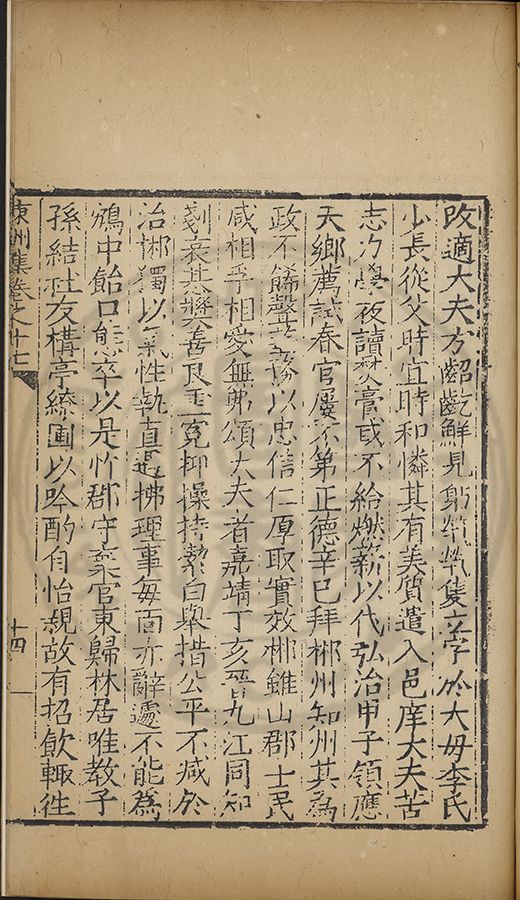 改適大夫方齠齔鮮見躬煢煢隻立字於大母李氏
少長從父時宜時和憐其有美質遣入邑庠大夫苦
志力學夜讀焚膏或不給燃薪以代弘治甲子領應
天鄉薦試春官屢不第正德辛巳拜郴州知州其為
政不餙聲譽務以忠信仁厚取實效郴雖山郡士民
咸相孚相愛無弗頌大夫者嘉靖丁亥晉九江同知
剗衰惎弊善良重寃抑操持潔白舉措公平不减於
治郴獨以氣性執直遇拂理事每面赤辭遽不能為
鴆中飴口態卒以是忤郡守棄官東歸林居唯教子
孫結社友構亭繚圃以吟酌自怡親故有招飲輒徃
東洲集卷之十七
十四